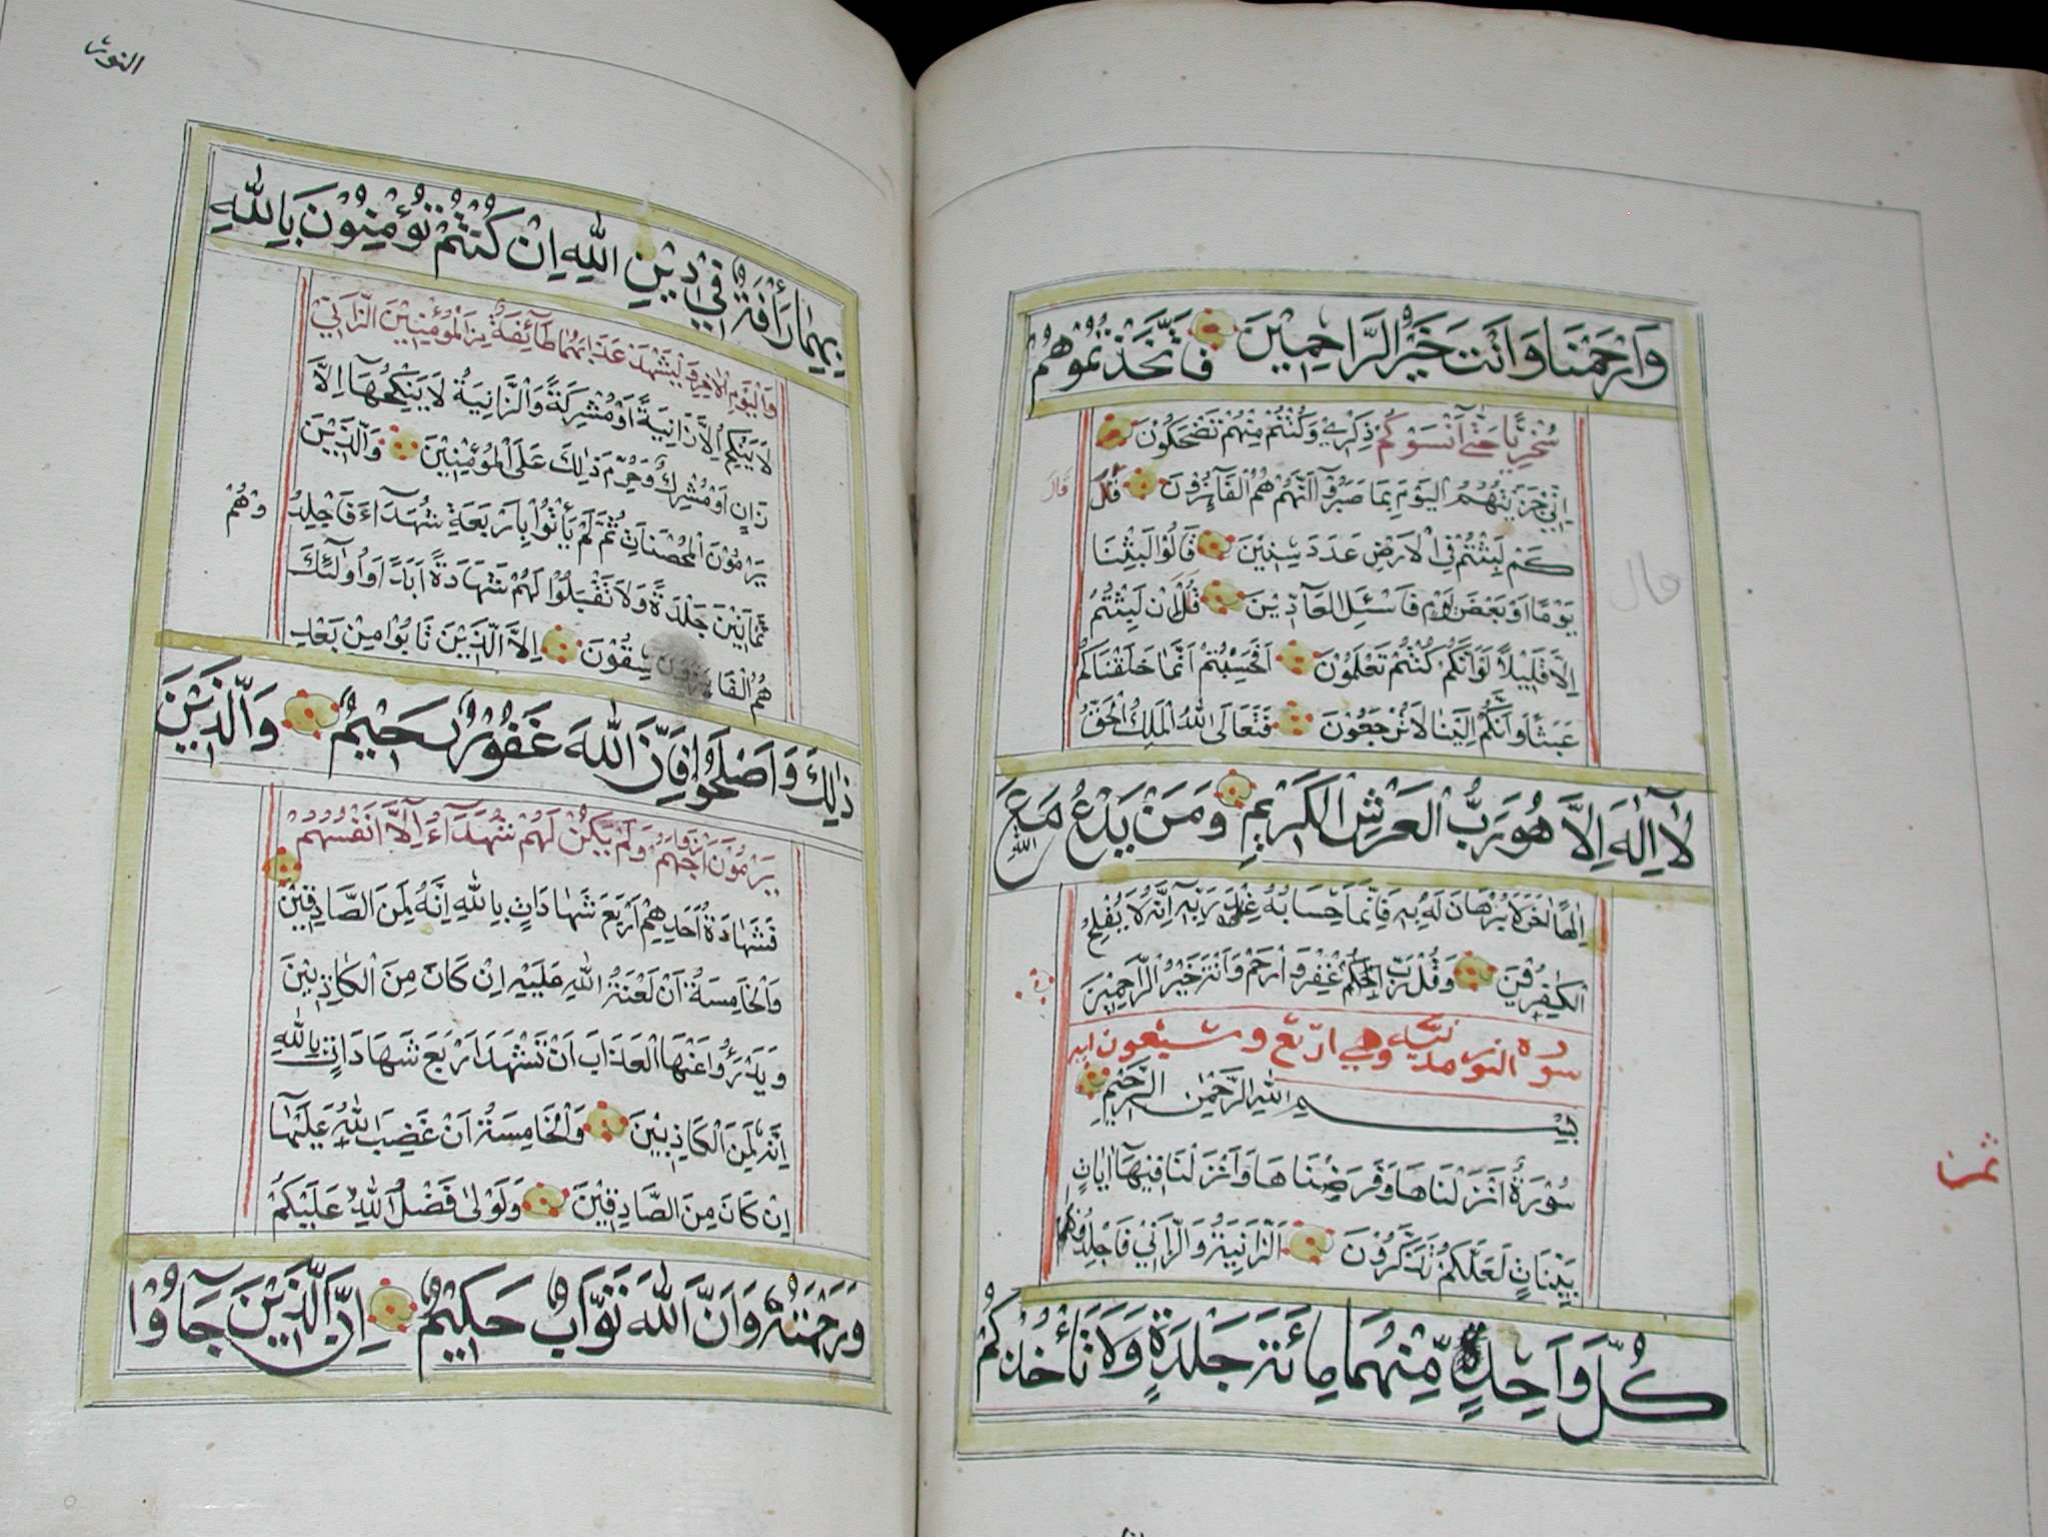 وَارْحَمْنَا وَاَنْتَ خَيْرُ الرَّاحِمِيْنَ فَاتَّخَذْتُمُوْهُمْ
سُخْرِيًّا حَتّٰى اَنْسَوْكُمْ ذِكْرِيْ وَكُنْتُمْ مِنْهُمْ تَضْحَكُوْنَ
اِنِّيْ جَزَيْتُهُمُ الْيَوْمَ بِمَا صَبَرُوْٓا اَنَّهُمْ هُمُ الْفَآئِزُوْنَ قَالَ
قال
كَمْ لَبِثْتُمْ فِي الْاَرْضِ عَدَدَ سِنِيْنَ قَالُوْا لَبِثْنَا
قال
يَوْمًا اَوْ بَعْضَ يَوْمٍ فَاسْئَلِ الْعَآدِّيْنَ قُلْ اِنْ لَبِثْتُمْ
اِلَّا قَلِيْلًا لَوْ اَنَّكُمْ كُنْتُمْ تَعْلَمُوْنَ اَفَحَسِبْتُمْ اَنَّمَا خَلَقْنَاكُمْ
عَبَثًا وَاَنَّكُمْ اِلَيْنَا لَا تُرْجَعُوْنَ فَتَعَالَى اللّٰهُ الْمَلِكُ الْحَقُّ
لَآ اِلٰهَ اِلَّا هُوَ رَبُّ الْعَرْشِ الْكَرِيْمِ وَمَنْ يَدْعُ مَعَ اللّٰهِ
اِلٰهًا اٰخَرَ لَا بُرْهَانَ لَهُ بِهٖ فَاِنَّمَا حِسَابُهُ عِنْدَ رَبِّهٖ اِنَّهُ لَا يُفْلِحُ
الْكٰفِرُوْنَ وَقُلْ رَبِّ اغْفِرْ وَارْحَمْ وَاَنْتَ خَيْرُ الرَّاحِمِيْنَ
سورة النور مدنية وهي اربع وستعون اية
بِسْمِ اللّٰهِ الرَّحْمٰنِ الرَّحِيْمِ
سُوْرَةٌ اَنْزَلْنَاهَا وَفَرَضْنَاهَا وَاَنْزَلْنَا فِيْهَا اٰيَاتٍ
بَيِّنَاتٍ لَعَلَّكُمْ تَذَكَّرُوْنَ اَلزَّانِيَةُ وَالزَّانِيْ فَاجْلِدُوْا
كُلَّ وَاحِدٍ مِّنْهُمَا مِائَةَ جَلْدَةٍ وَلَا تَأْخُذْكُمْ
ثمن
النور
بِهِمَا رَأْفَةٌ فِيْ دِيْنِ اللّٰهِ اِنْ كُنْتُمْ تُؤْمِنُوْنَ بِاللّٰهِ
وَالْيَوْمِ الْاٰخِرِ وَلْيَشْهَدْ عَذَابَهُمَا طَآئِفَةٌ مِنَ الْمُؤْمِنِيْنَ الزَّانِيْ
لَا يَنْكِحُ اِلَّا زَانِيَةً اَوْ مُشْرِكَةً وَالزَّانِيَةُ لَا يَنْكِحُهَا اِلَّا
زَانٍ اَوْ مُشْرِكٌ وَحُرِّمَ ذٰلِكَ عَلَى الْمُؤْمِنِيْنَ وَالَّذِيْنَ
يَرْمُوْنَ الْمُحْصَنَاتِ ثُمَّ لَمْ يَأْتُوْا بِاَرْبَعَةِ شُهَدَآءَ فَاجْلِدُوْهُمْ
ثَمَانِيْنَ جَلْدَةً وَلَا تَقْبَلُوْا لَهُمْ شَهَادَةً اَبَدًا وَاُولٰٓئِكَ
هُمُ الْفَاسِقُوْنَ اِلَّا الَّذِيْنَ تَابُوْا مِنْ بَعْدِ
ذٰلِكَ وَاَصْلَحُوْا فَاِنَّ اللّٰهَ غَفُوْرٌ رَحِيْمٌ وَالَّذِيْنَ
يَرْمُوْنَ اَزْوَاجَهُمْ وَلَمْ يَكُنْ لَهُمْ شُهَدَآءُ اِلَّآ اَنْفُسُهُمْ
فَشَهَادَةُ اَحَدِهِمْ اَرْبَعَ شَهَادَاتٍ بِاللّٰهِ اِنَّهُ لَمِنَ الصَّادِقِيْنَ
وَالْخَامِسَةُ اَنْ لَعْنَةُ اللّٰهِ عَلَيْهِ اِنْ كَانَ مِنَ الْكَاذِبِيْنَ
وَيَدْرَؤُا عَنْهَا الْعَذَابَ اَنْ تَشْهَدَ اَرْبَعَ شَهَادَاتٍ بِاللّٰهِ
اِنَّهُ لَمِنَ الْكَاذِبِيْنَ وَالْخَامِسَةُ اَنْ غَضِبَ اللّٰهُ عَلَيْهَا
اِنْ كَانَ مِنَ الصَّادِقِيْنَ وَلَوْلٰا فَضْلُ اللّٰهِ عَلَيْكُمْ
وَرَحْمَتُهُ وَاَنَّ اللّٰهَ تَوَّابٌ حَكِيْمٌ اِنَّ الَّذِيْنَ جَآوُا